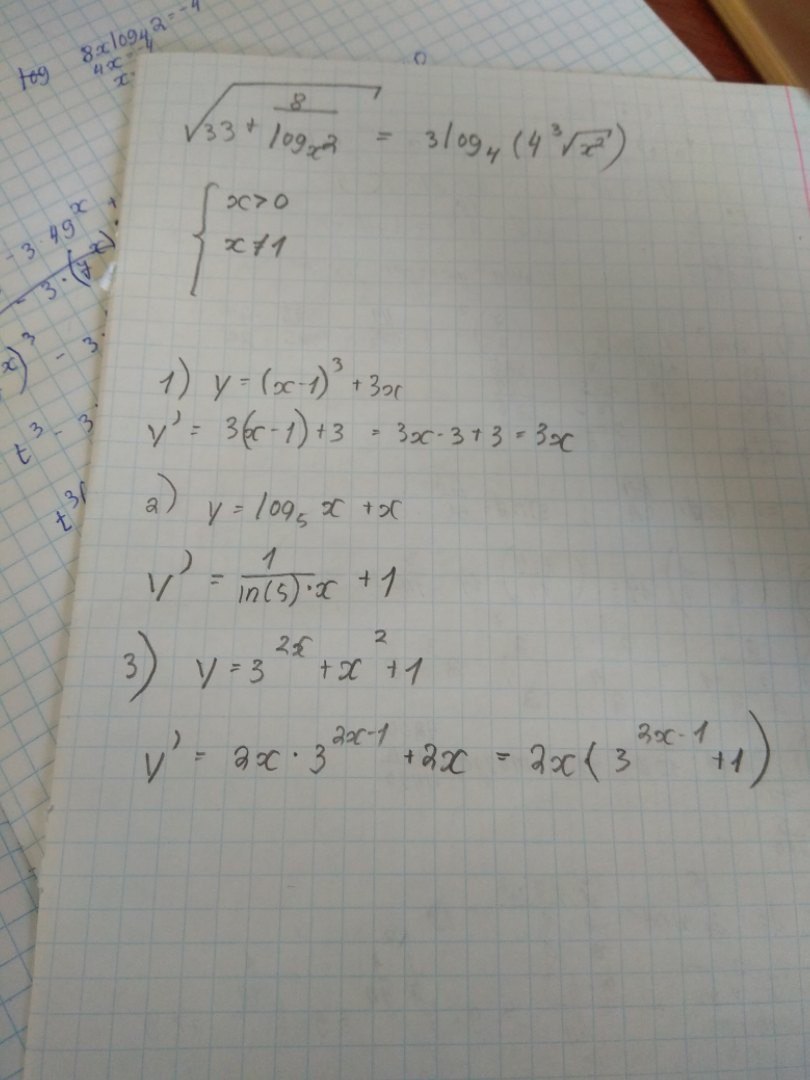 log 8xlog₄2=-4
4x=-4
x
-3·49^x +
-3·(7^x)
x)³ - 3·
t³ - 3
t³(
√(33 + 8/logₓ2) = 3log₄(4∛x²)
{ x>0
x≠1
1) y = (x-1)³ + 3x
y' = 3(x-1)+3 = 3x-3+3 = 3x
2) y = log₅ x + x
y' = 1/(ln(5)·x) + 1
3) y = 3^(2x) + x² + 1
y' = 2x · 3^(2x-1) + 2x = 2x(3^(2x-1) + 1)